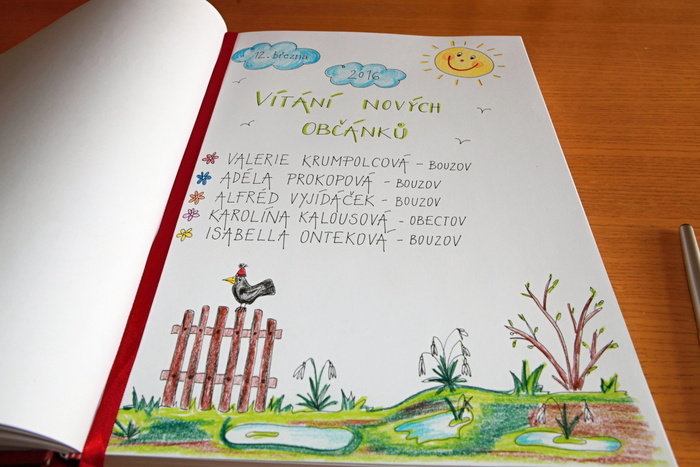 12. března
2016
VÍTÁNÍ NOVÝCH
OBČÁNKŮ
VALERIE KRUMPOLCOVÁ - BOUZOV
ADÉLA PROKOPOVÁ - BOUZOV
ALFRÉD VYJÍDÁČEK - BOUZOV
KAROLÍNA KALOUSOVÁ - OBECTOV
ISABELLA ONTEKOVÁ - BOUZOV